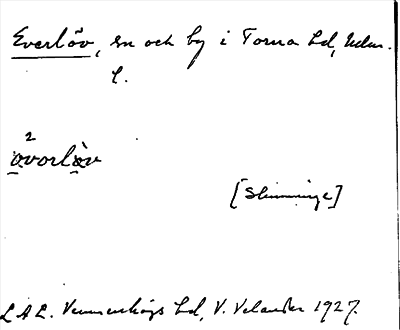 Everlöv, sn och by i Torna hd, Mlm.
l.
2
övorlöv
[Slimminge]
LAL. Vemmenhögs hd, V. Velander 1927.